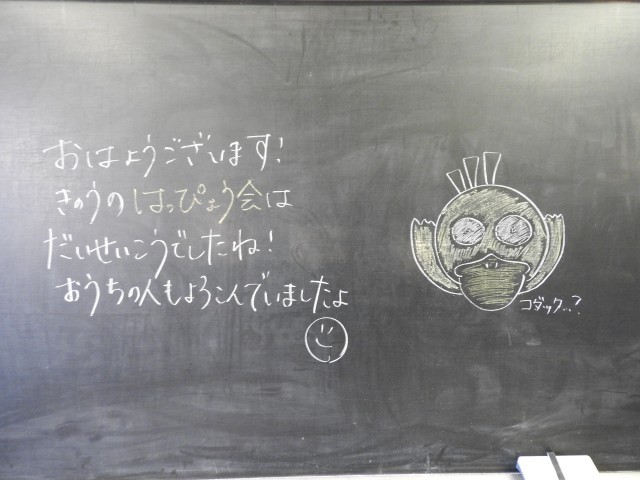 おはようございます!
きのうのはっぴょう会は
だいせいこうでしたね!
おうちの人もよろこんでいましたよ
コダック…?